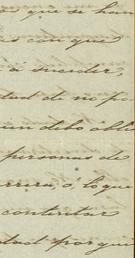 que se han
con que
á suceder,
tad de no po
un debo obli
personas de
rrera, ó lo que
contentar
dad porque